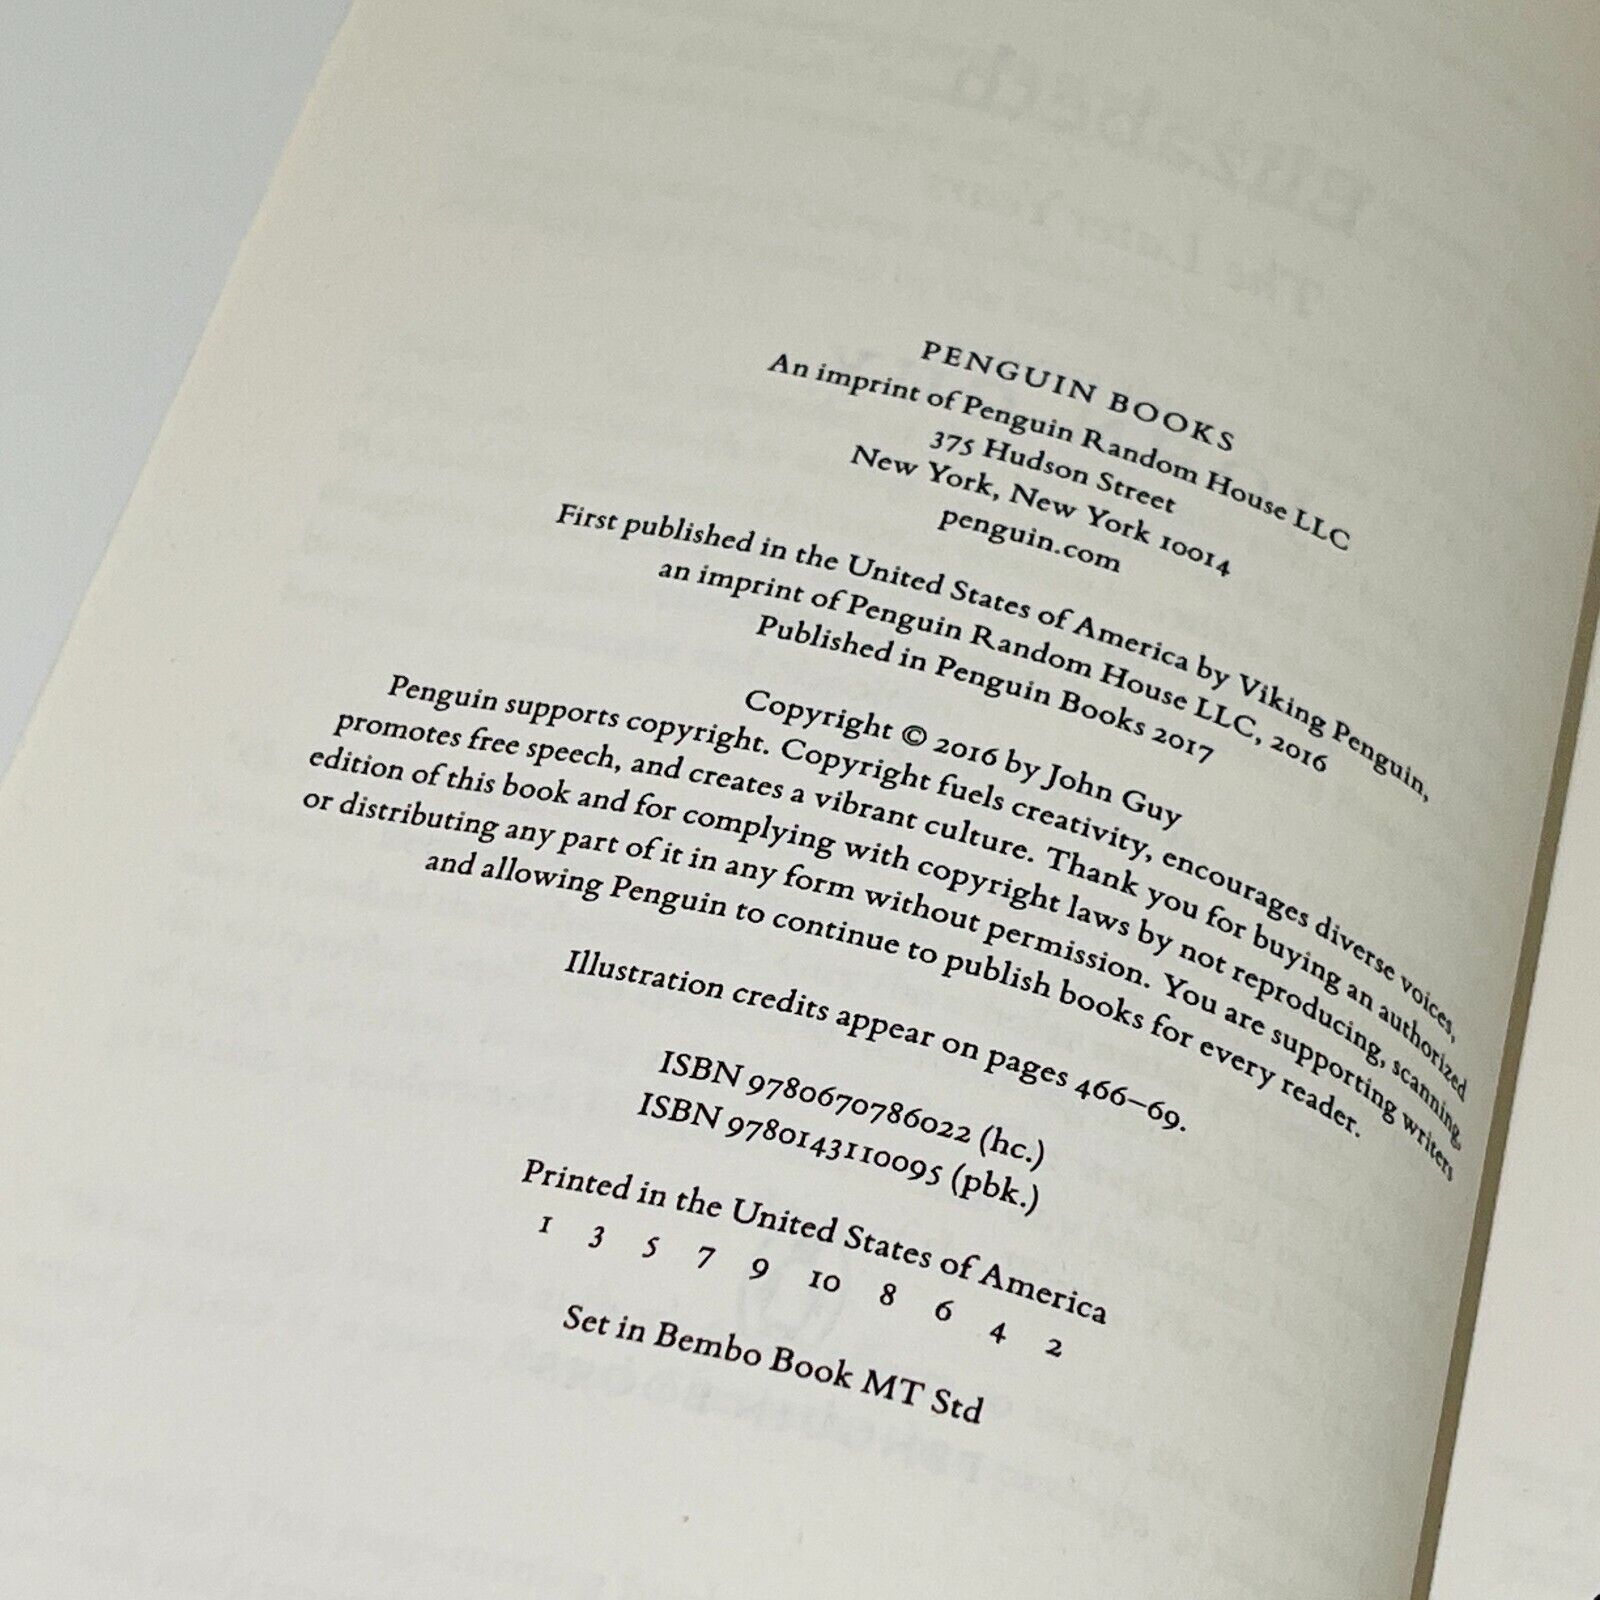 PENGUIN BOOKS
An imprint of Penguin Random House LLC
375 Hudson Street
New York, New York 10014
penguin.com
First published in the United States of America by Viking Penguin,
an imprint of Penguin Random House LLC, 2016
Published in Penguin Books 2017
Copyright © 2016 by John Guy
Penguin supports copyright. Copyright fuels creativity, encourages diverse voices,
promotes free speech, and creates a vibrant culture. Thank you for buying an authorized
edition of this book and for complying with copyright laws by not reproducing, scanning,
or distributing any part of it in any form without permission. You are supporting writers
and allowing Penguin to continue to publish books for every reader.
Illustration credits appear on pages 466–69.
ISBN 9780670786022 (hc.)
ISBN 9780143110095 (pbk.)
Printed in the United States of America
1 3 5 7 9 10 8 6 4 2
Set in Bembo Book MT Std